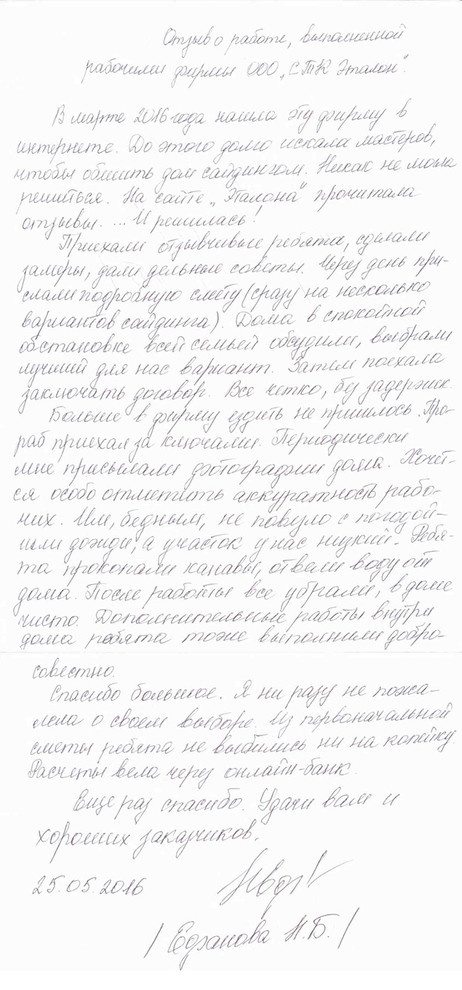 Отзыв о работе, выполненной
рабочими фирмы ООО „СТК Эталон".
В марте 2016 года нашла эту фирму в
интернете. До этого долго искала мастеров,
чтобы обшить дом сайдингом. Никак не могла
решиться. На сайте „Эталона" прочитала
отзывы. ... И решилась!
Приехали отзывчивые ребята, сделали
замеры, дали дельные советы. Через день при-
слали подробную смету (сразу на несколько
вариантов сайдинга). Дома в спокойной
обстановке всей семьей обсудили, выбрали
лучший для нас вариант. Затем поехала
заключать договор. Все четко, без задержек.
Больше в фирму ездить не пришлось. Про-
раб приехал за ключами. Периодически
мне присылали фотографии дома. Хочет-
ся особо отметить аккуратность рабо-
чих. Им, бедным, не повезло с погодой-
лили дожди, а участок у нас низкий. Ребя-
та прокопали канавы, отвели воду от
дома. После работы все убрали, в доме
чисто. Дополнительные работы внутри
дома ребята тоже выполнили добро-
совестно.
Спасибо большое. Я ни разу не пожа-
лела о своем выборе. Из первоначальной
сметы ребята не выбились ни на копейку.
Расчеты вела через онлайн-банк.
Еще раз спасибо. Удачи вам и
хороших заказчиков.
25.05.2016
/ Едранова Н.Б. /